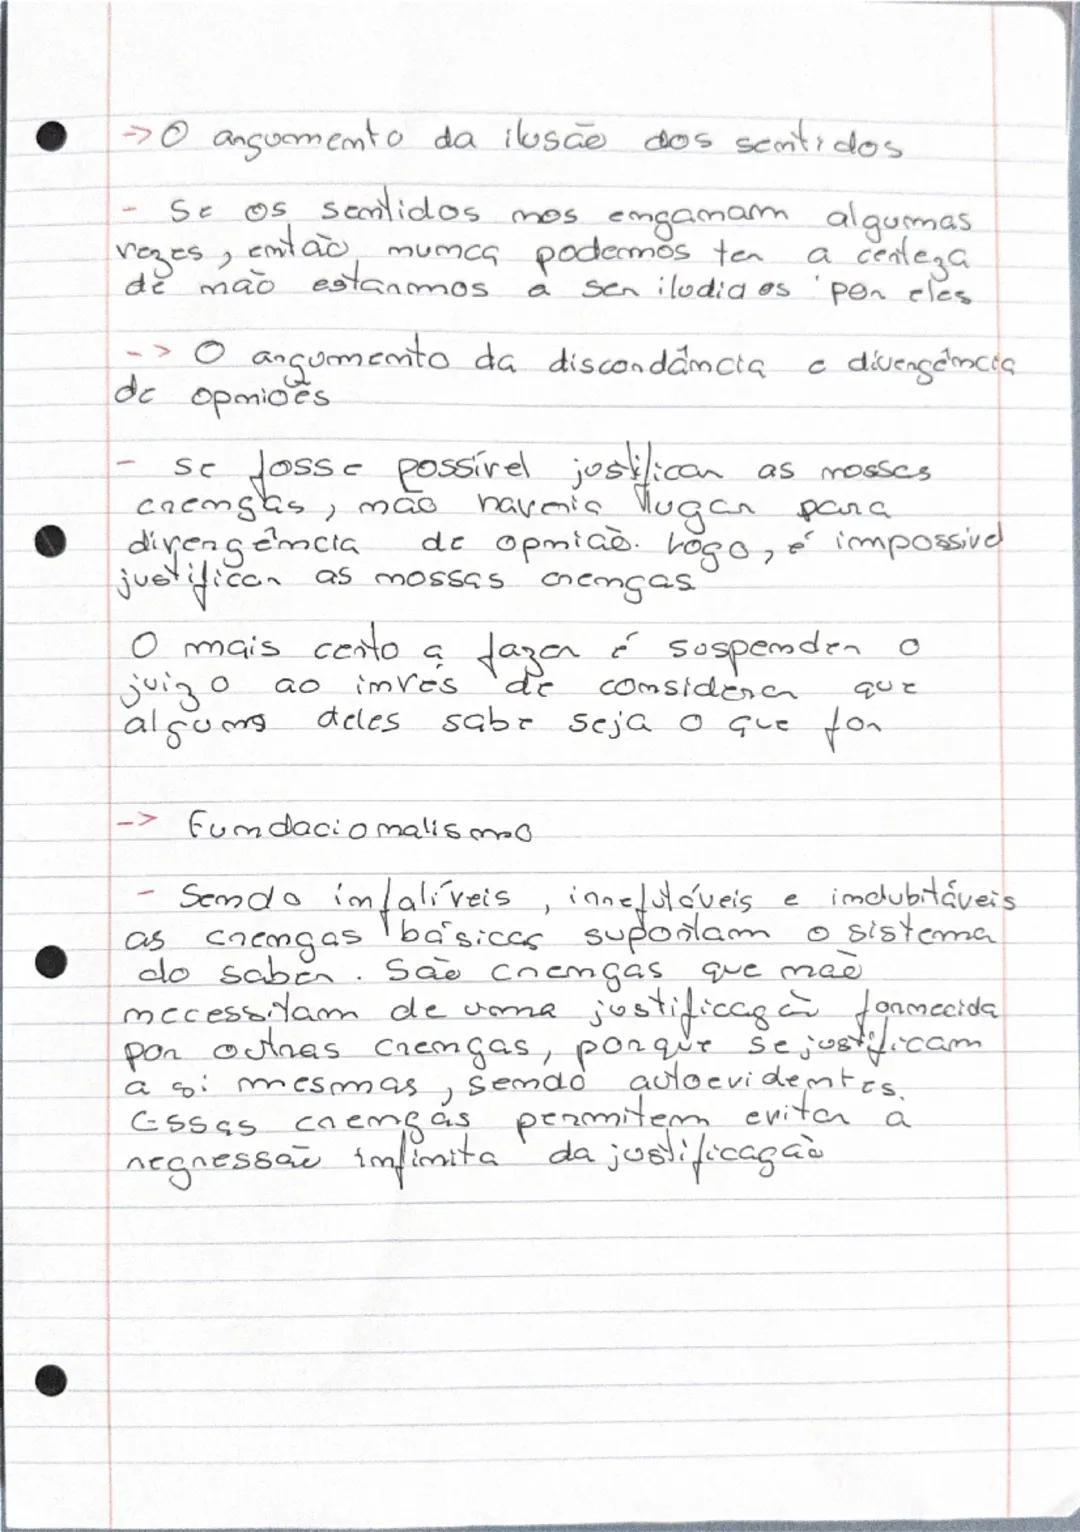 -> O argumento da ilusão dos sentidos
- Se os sentidos nos enganam algumas
vezes, então, nunca podemos ter a certeza
de não estarmos a ser iludidos por eles
-> O argumento da discordância e divergência
de opniões
- Se fosse possível justificar as nossas
crenças, não haveria lugar para
divergência de opnião. Logo, é impossivel
justificar as nossas crenças
O mais certo a fazer é suspender o
juizo ao invés de considerar que
algum deles sabe seja o que for
-> Fundacionalismo
- Sendo infalíveis, irrefutáveis e indubitáveis
as crenças básicas suportam o sistema
do saber. São crenças que não
necessitam de uma justificação fornecida
por outras crenças, porque se justificam
a si mesmas, sendo autoevidentes.
Essas crenças permitem evitar a
regressão infinita da justificação